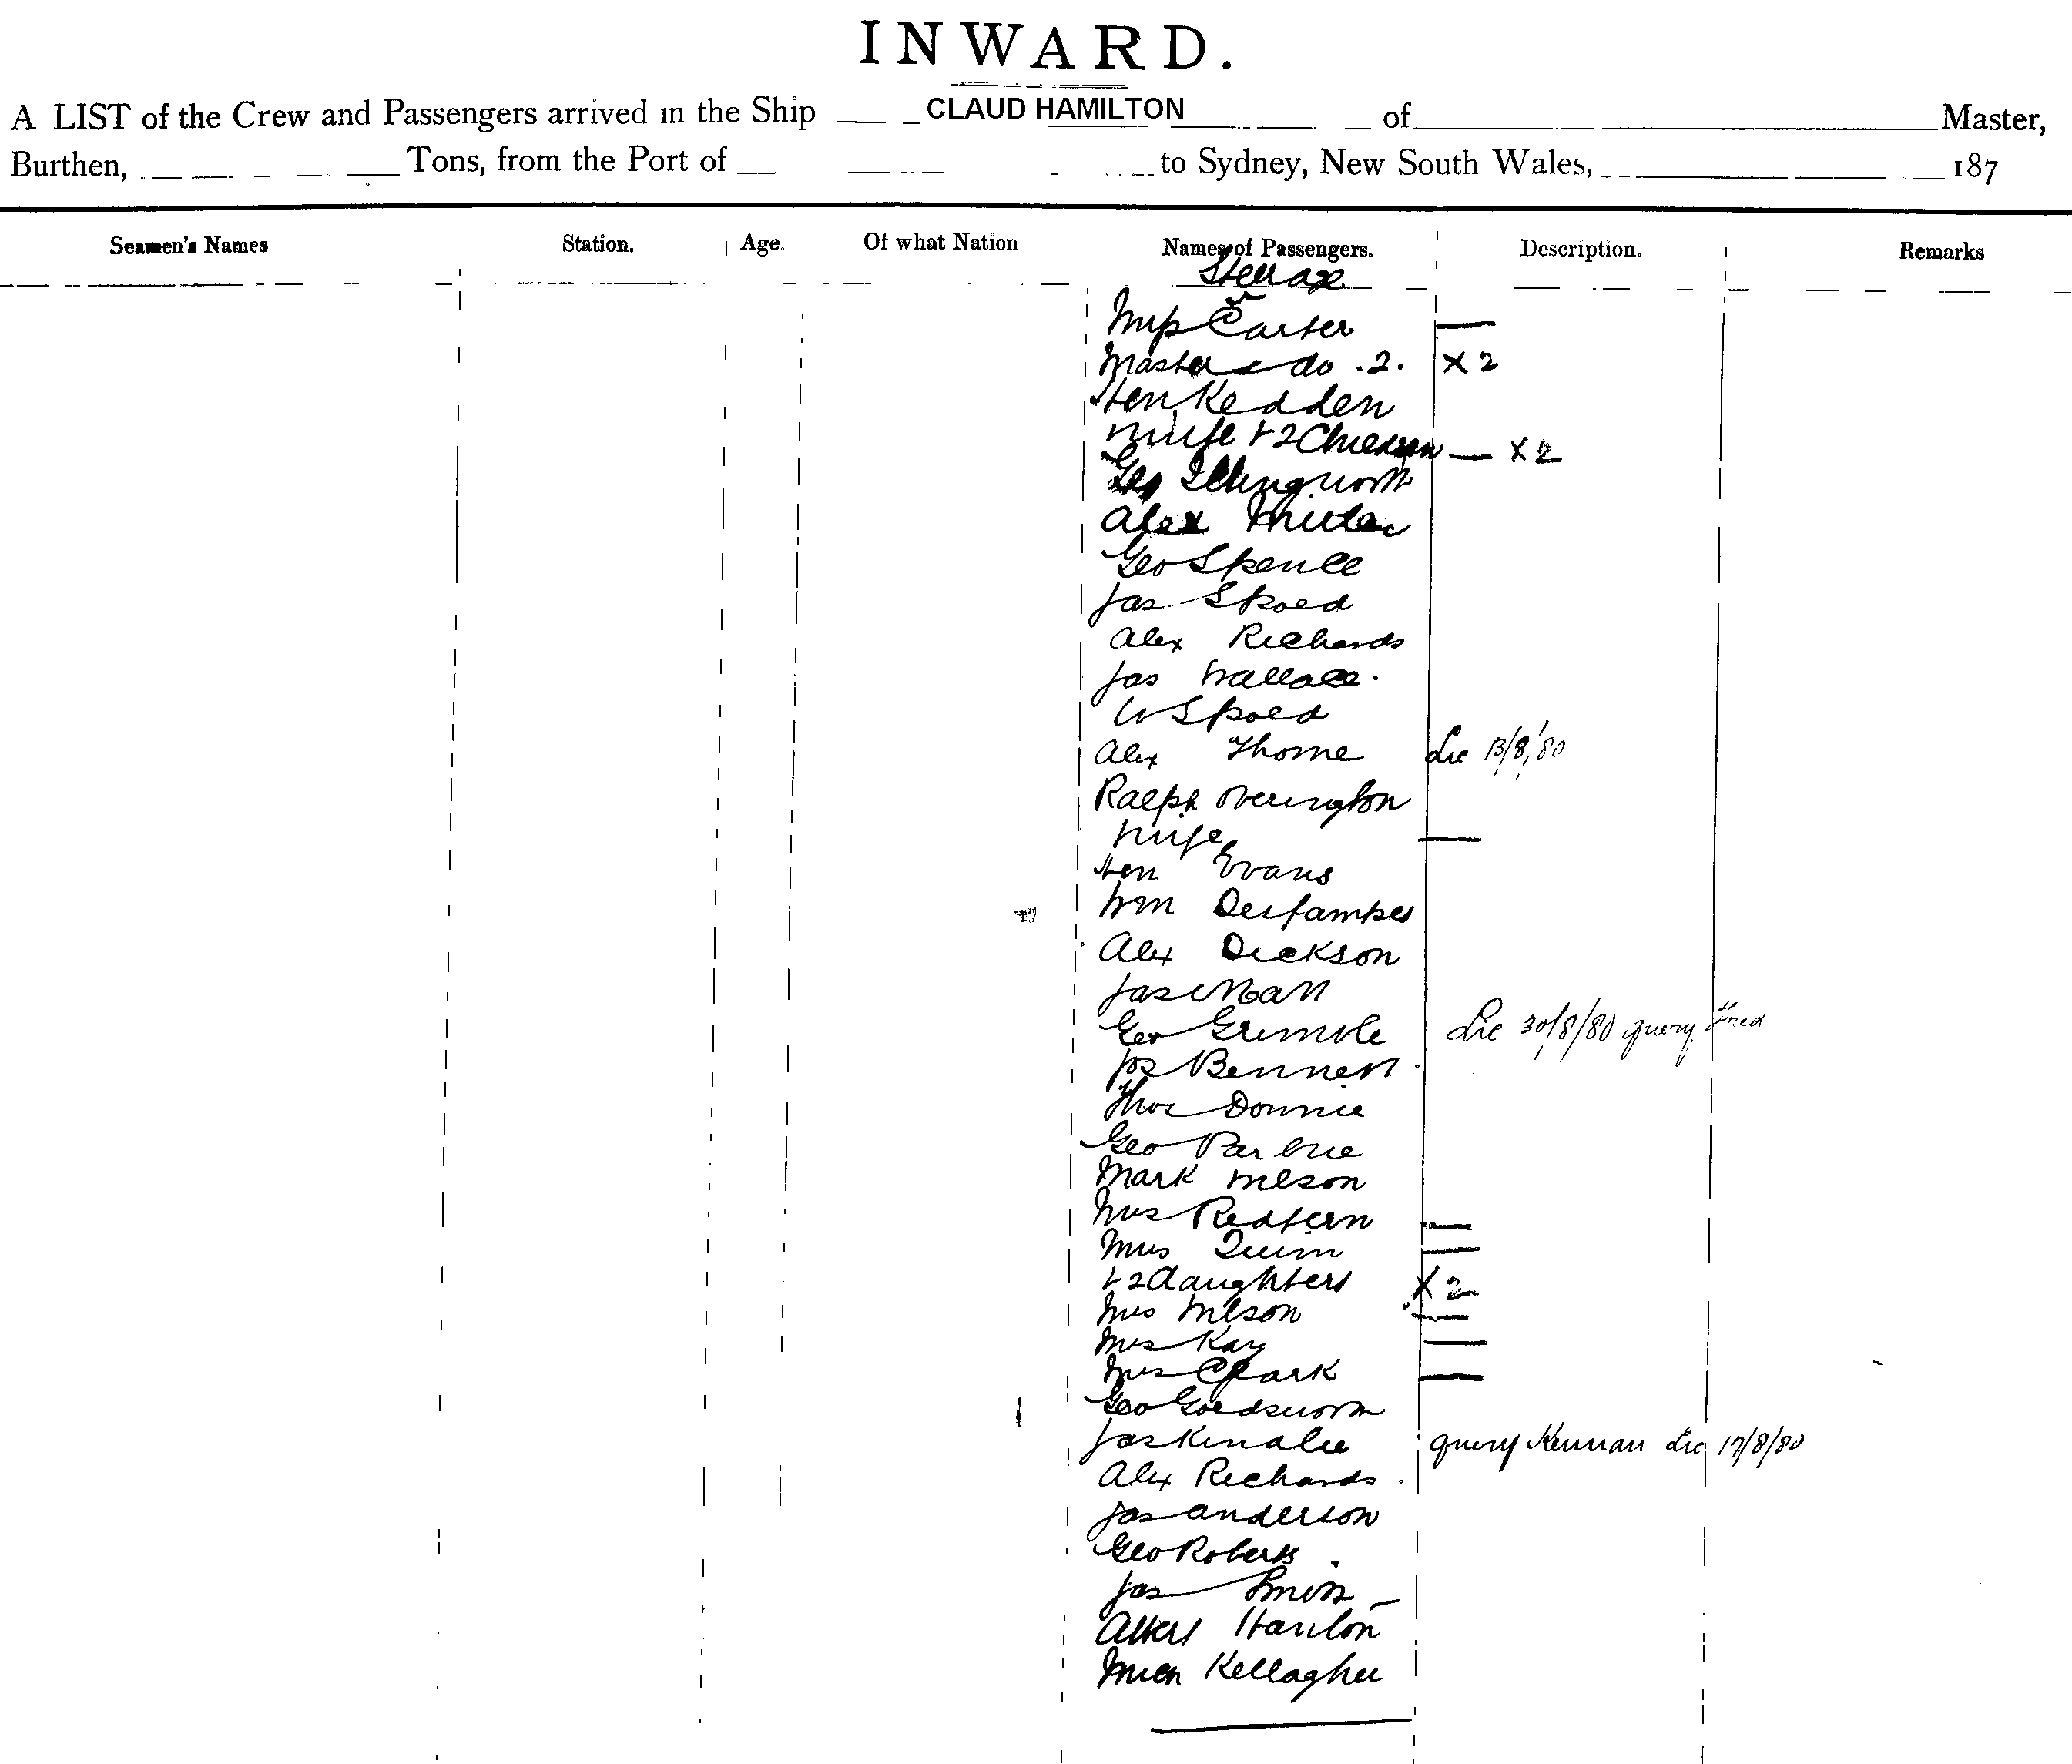 INWARD.
A LIST of the Crew and Passengers arrived in the Ship CLAUD HAMILTON of Master,
Burthen, Tons, from the Port of to Sydney, New South Wales, 187
Seamen's Names Station. Age. Of what Nation Names of Passengers. Description. Remarks
Carter
Master do .2. X 2
Hen Kedden
Wife + 2 Children X 2
Geo Illingworth
Alex Miller
Geo Spence
Jas Skoed
Alex Richards
Jas Wallace.
W Skoed
Alex Thorne Lic 13/8/80
Ralph Overington
Wife
Hen Evans
Wm
Alex Dickson
Jas
Geo Grimble Lic 30/8/80 query Fred
Jas Bennett
Thos Downie
Geo
Mark Wilson
Mrs Redfern
Mrs Quinn
+ 2 daughters X 2
Mrs Wilson
Mrs Kay
Mrs Clark
Geo Goldsworth
Jas Kinalie query Kennan Lic 17/8/80
Alex Richards
Jas Anderson
Geo Roberts
Jas Smith
Albert
Kellagher